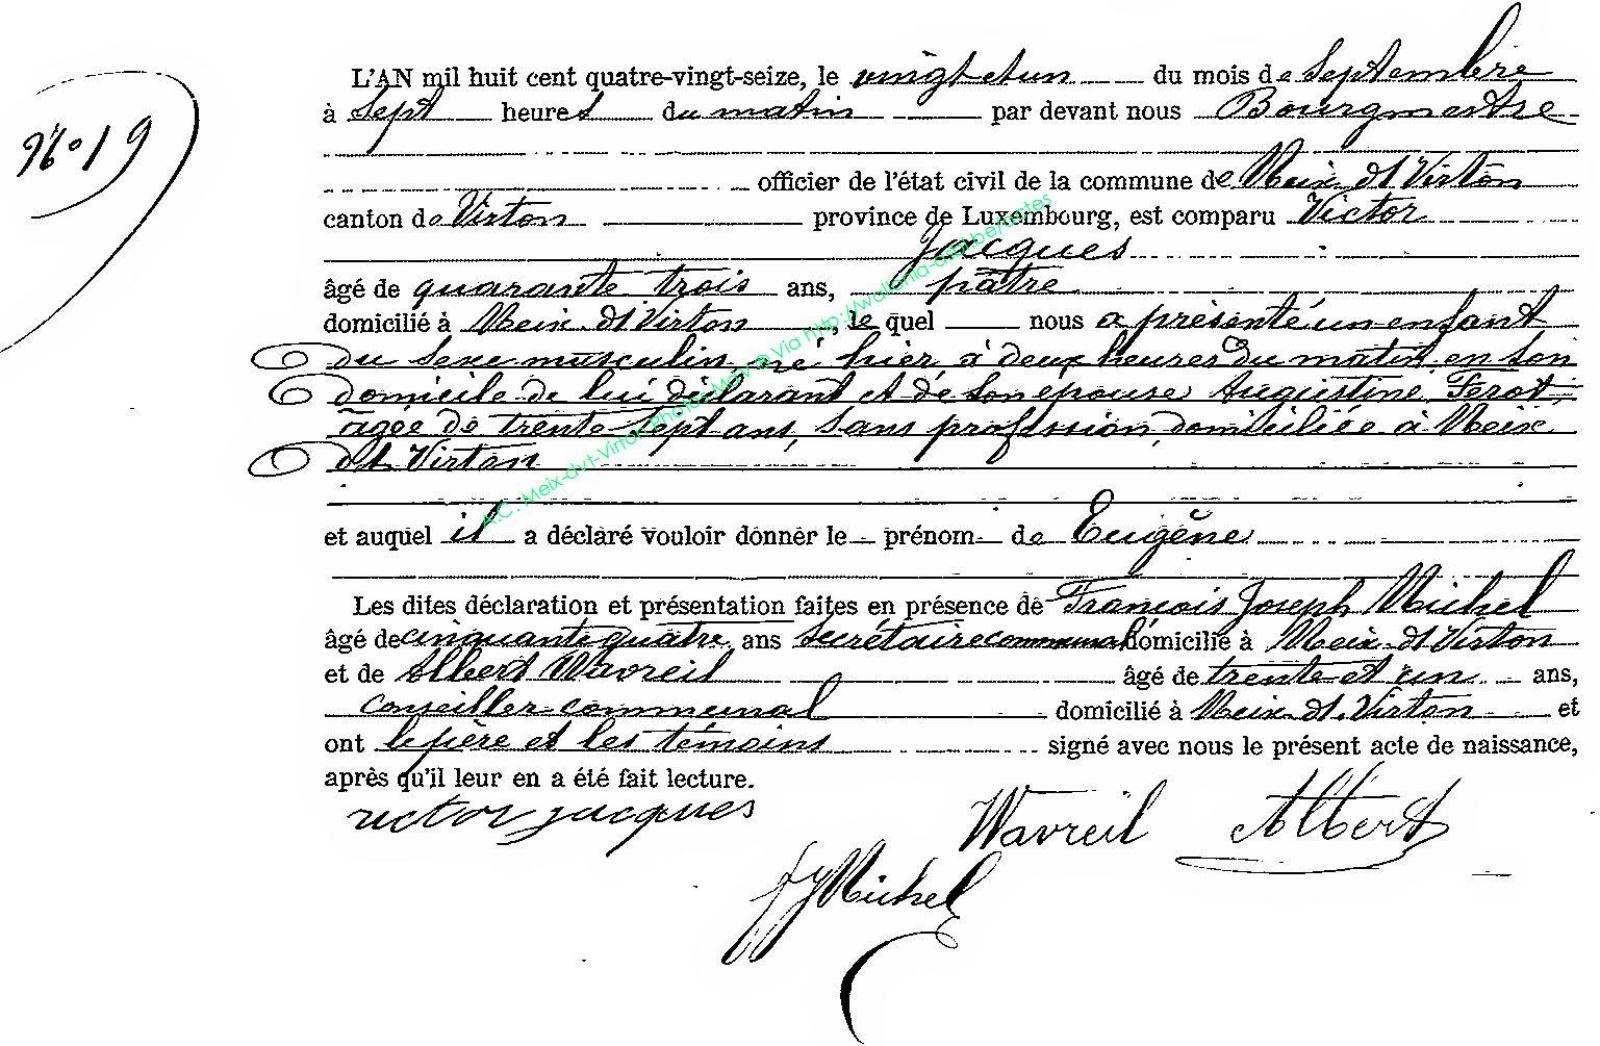 N° 19
L'AN mil huit cent quatre-vingt-seize, le vingt et un du mois de Septembre
à Sept heures du matin par devant nous Bourgmestre
officier de l'état civil de la commune de Meix dt Virton
canton de Virton province de Luxembourg, est comparu Victor
Jacques
âgé de quarante trois ans, pâtre
domicilié à Meix dt Virton, le quel nous a présenté un enfant
du sexe musculin, né hier, à deux heures du matin, en son
domicile de lui déclarant et de son epouse Augustine Ferot,
âgée de trente sept ans, sans profession domiciliée à Meix
dt Virton
et auquel il a déclaré vouloir donner le prénom de Eugène
Les dites déclaration et présentation faites en présence de François Joseph Michel
âgé de cinquante quatre ans secrétaire communal domicilié à Meix dt Virton
et de Albert Wavreil âgé de trente et un ans,
conseiller communal domicilié à Meix dt Virton et
ont le père et les témoins signé avec nous le présent acte de naissance,
après qu'il leur en a été fait lecture.
victor jacques Wavreil Albert
fj Michel